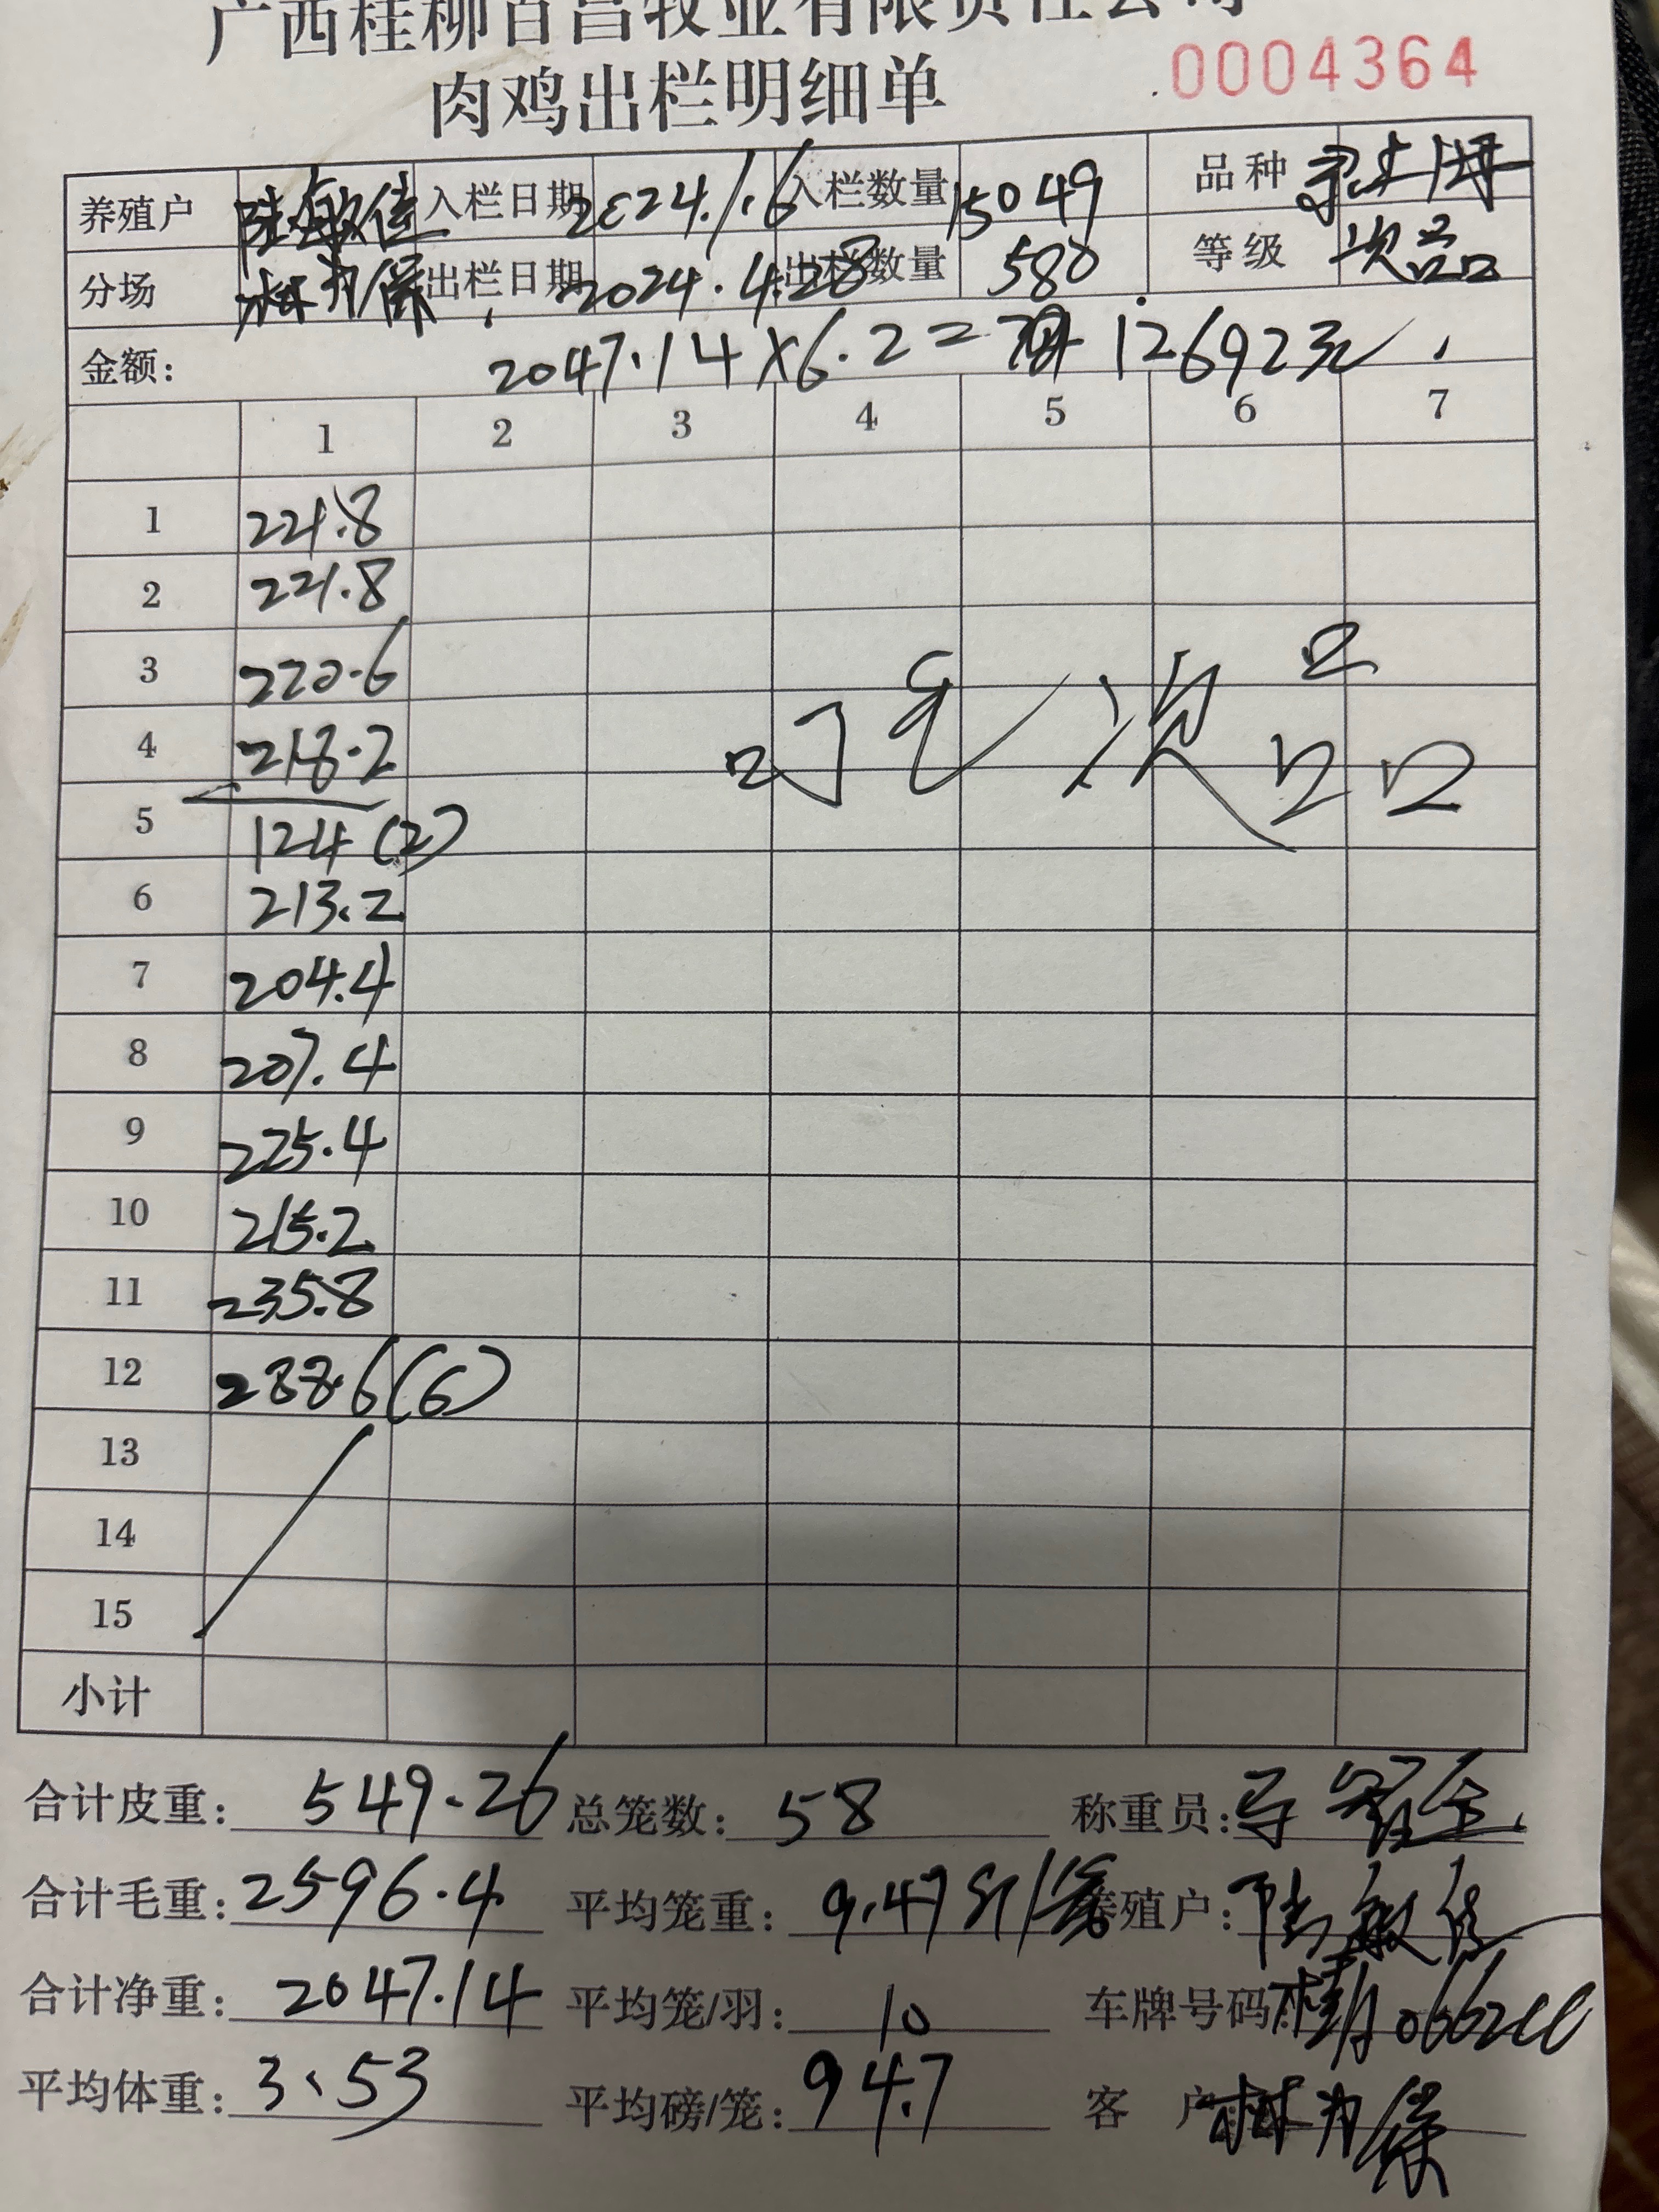 广西桂柳百昌牧业有限责任公司
肉鸡出栏明细单
0004364
养殖户 陆敏佳 入栏日期 2024.1.6 入栏数量 15049 品种
分场 林为保 出栏日期 2024.4.28 出栏数量 580 等级 次品
金额: 2047.14×6.2= 12692元
1 2 3 4 5 6 7
1 221.8
2 221.8
3 220.6
4 218.2
5 124 (2)
6 213.2
7 204.4
8 207.4
9 225.4
10 215.2
11 235.8
12 288.6(6)
次品
13
14
15
小计
合计皮重: 549.26 总笼数: 58 称重员:
合计毛重: 2596.4 平均笼重: 9.47斤/笼 养殖户: 陆敏佳
合计净重: 2047.14 平均笼/羽: 10 车牌号码:
平均体重: 3.53 平均磅/笼: 94.7 客户: 林为保